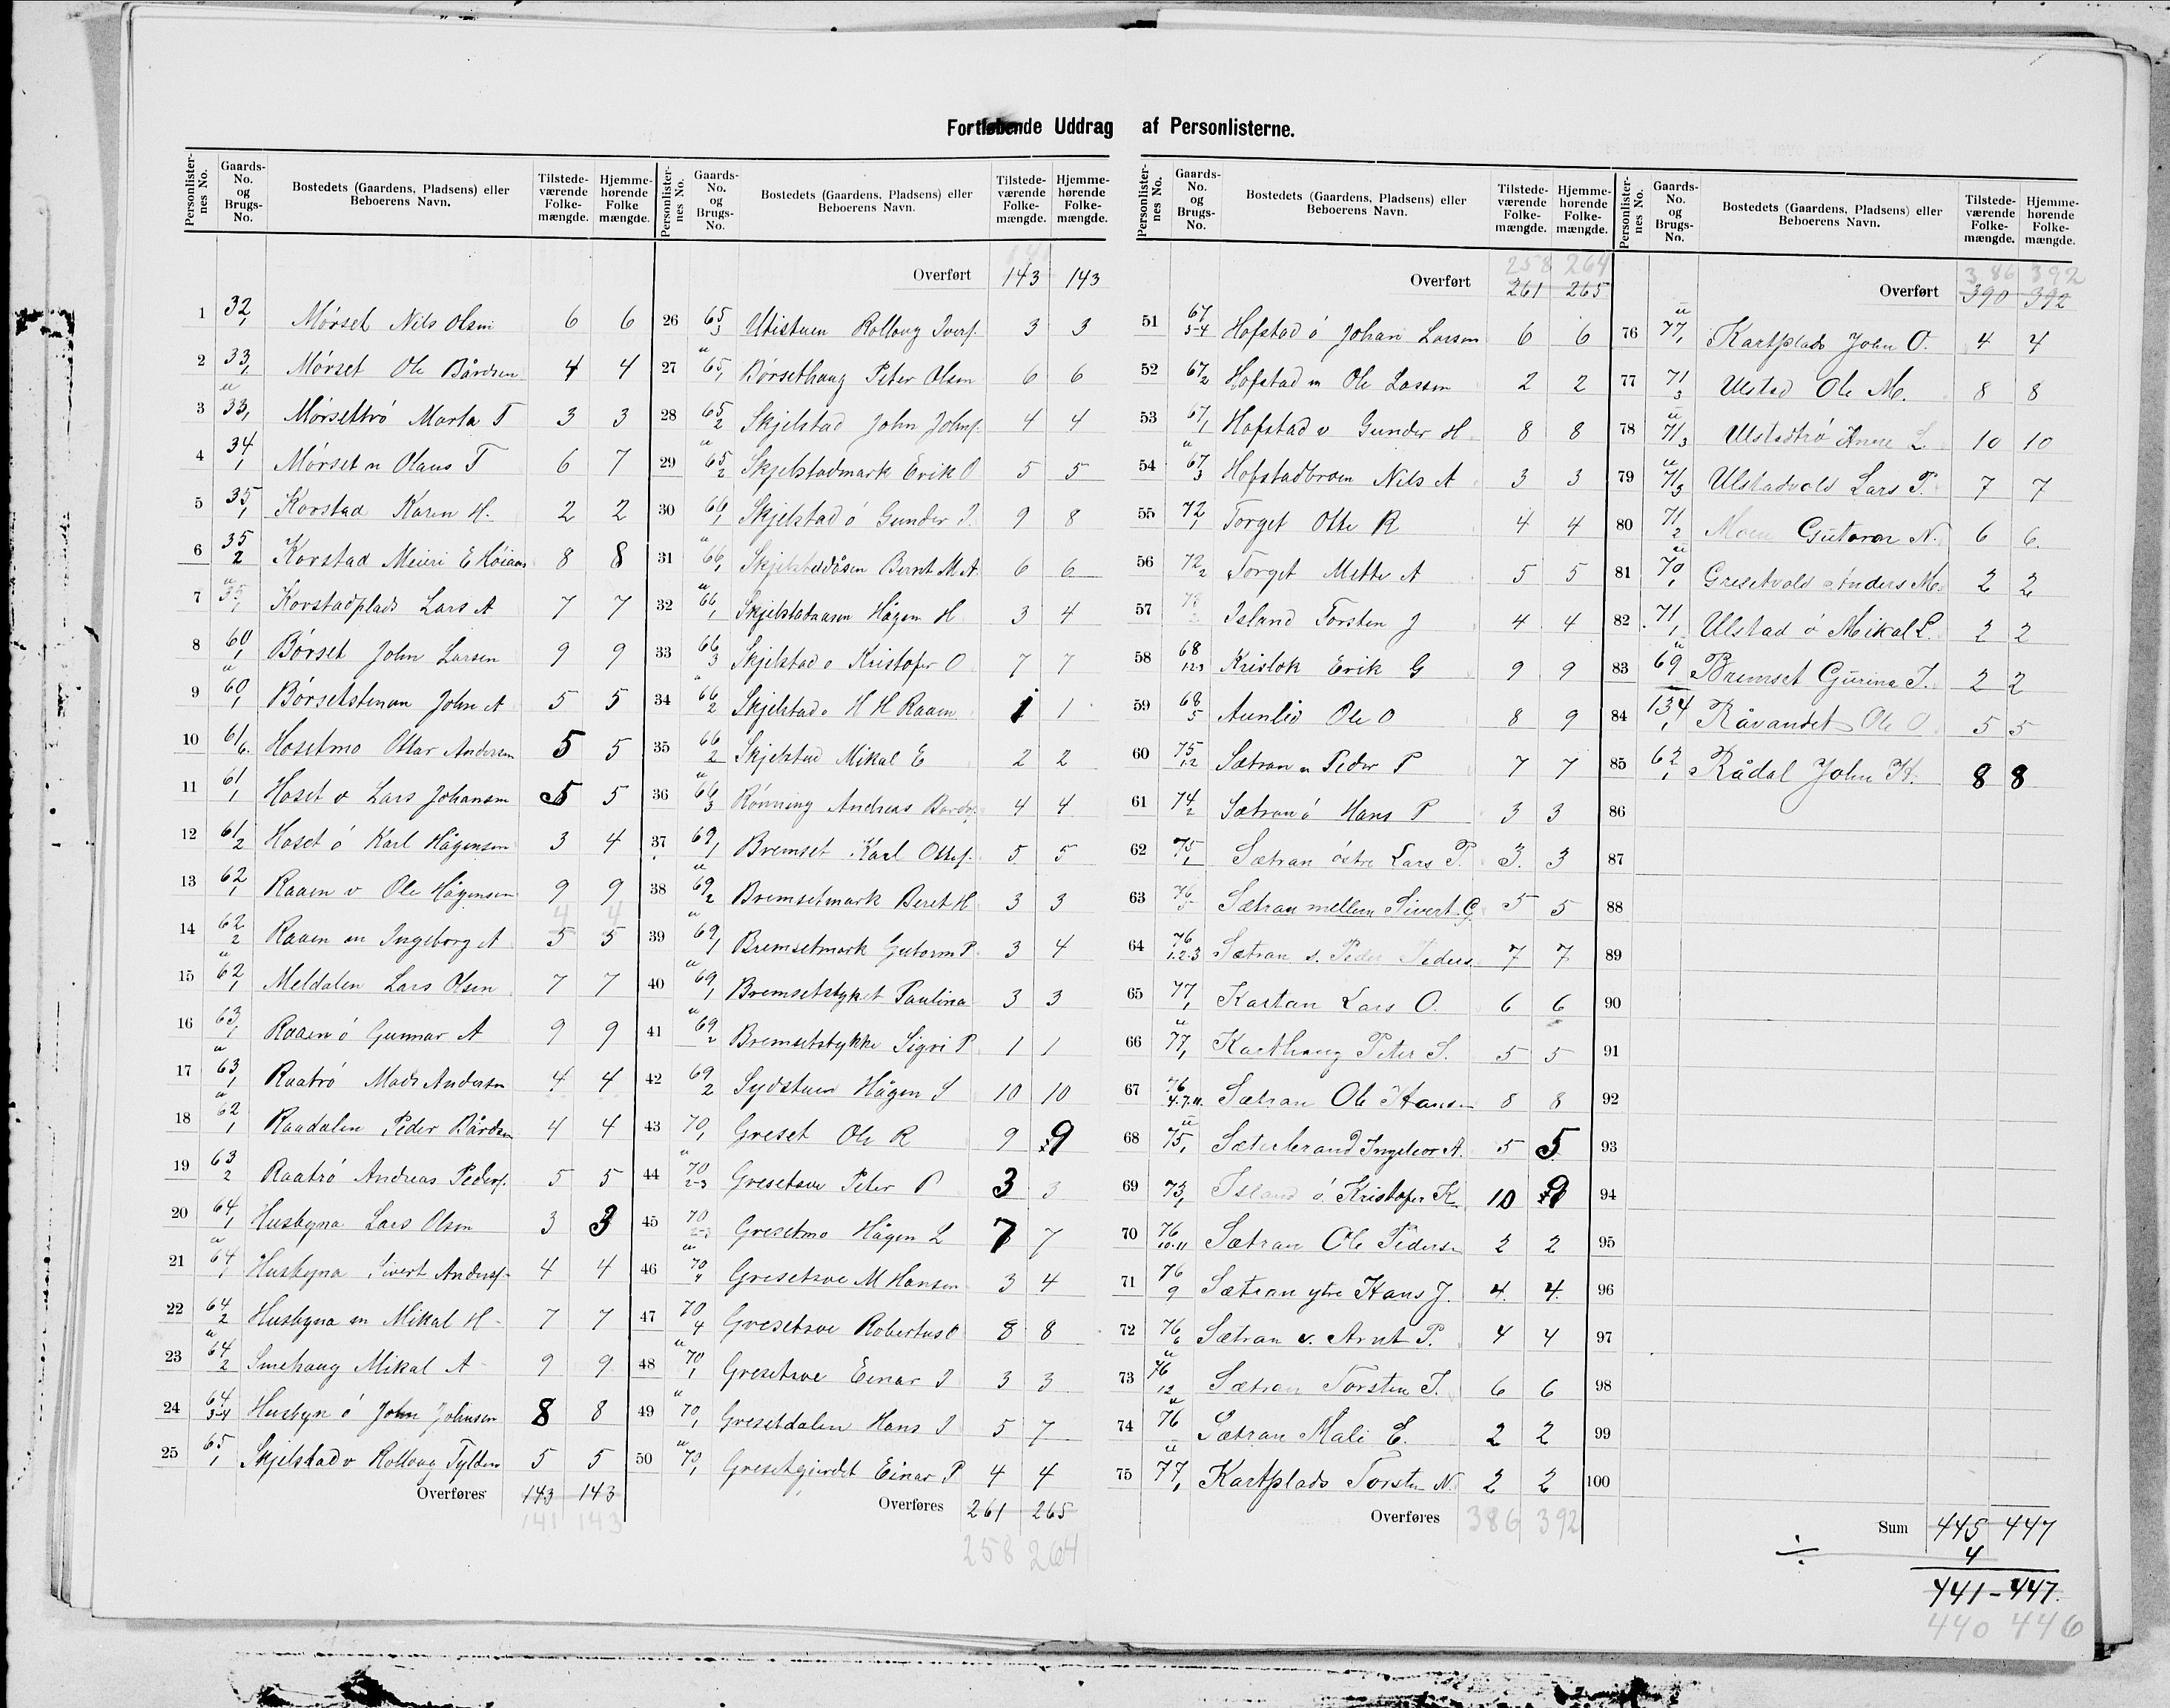 Fortløbende Uddrag af Personlisterne.
Personlister-nes No. Gaards-No. og Brugs-No. Bostedets (Gaardens, Pladsens) eller Beboerens Navn. Tilstede-værende Folke-mængde. Hjemme-hørende Folke mængde.
1 32/1 Mørset Nils Olsen 6 6
2 33/1 Mørset Ole Bårdsen 4 4
3 u 33/1 Mørsettrø Marta T 3 3
4 34/1 Mørset n Olaus T 6 7
5 35/1 Korstad Karen H. 2 2
6 35/2 Korstad Meieri E Høiaas 8 8
7 u 35/1 Korstadplads Lars A 7 7
8 60/1 Børset John Larsen 9 9
9 u 60/1 Børsetstenan John A 5 5
10 61/6 Hosetmo Ottar Andersen 5 5
11 61/1 Hoset v Lars Johansen 5 5
12 61/2 Hoset ø Karl Hågensen 3 4
13 62/1 Raaen v Ole Hågensen 9 9
4 4
14 62/2 Raaen m Ingeborg A 5 5
15 u 62/1 Meldalen Lars Olsen 7 7
16 63/1 Raaen ø Gunnar A 9 9
17 u 63/1 Raatrø Mads Andersen 4 4
18 u 62/1 Raadalen Peder Bårdsen 4 4
19 63/2 Raatrø Andreas Peders. 5 5
20 64/1 Husbyna Lars Olsen 3 3
21 u 64/1 Husbyna Sivert Anders. 4 4
22 64/2 Husbyna m Mikal H 7 7
23 u 64/2 Smehaug Mikal A 9 9
24 64/3-4 Husbyn ø John Johnsen 8 8
25 65/1 Skjelstad v Rollaug Tylden 5 5
Overføres 143 143
141 143
Personlister-nes No. Gaards-No. og Brugs-No. Bostedets (Gaardens, Pladsens) eller Beboerens Navn. Tilstede-værende Folke-mængde. Hjemme-hørende Folke-mængde.
Overført 143 143
26 65/3 Utistuen Rollaug Ivers. 3 3
27 u 65/1 Børsethaug Peter Olsen 6 6
28 65/2 Skjelstad John Johns. 4 4
29 u 65/2 Skjelstadmark Erik O 5 5
30 66/1 Skjelstad ø Gunder I. 9 8
31 u 66/1 Skjelstadåsen Bernt M A 6 6
32 u 66/1 Skjelstadaasen Hågen H 3 4
33 66/3 Skjelstad o Kristofer O 7 7
34 66/2 Skjelstad o H H Raaen 1 1
35 66/2 Skjelstad Mikal E 2 2
36 u 66/3 Rønning Andreas Bards. 4 4
37 69/1 Bremset Karl Ottes. 5 5
38 u 69/2 Bremsetmark Beret H 3 3
39 u 69/1 Bremsetmark Gutorm P 3 4
40 u 69/1 Bremsetstyket Paulina 3 3
41 u 69/2 Bremsetstykke Sigri P 1 1
42 69/2 Sydstuen Hågen S 10 10
43 70/1 Greset Ole R 9 9
44 u 70/2-3 Gresetsve Peter P 3 3
45 70 Gresetmo Hågen L 7 7
46 u 70/4 Gresetsve M Hansen 3 4
47 70/4 Gresetsve Robertus O 8 8
48 u 70/1 Gresetsve Einar I 3 3
49 u 70/1 Gresetdalen Hans I 5 7
50 u 70/1 Gresetgjerdet Einar P 4 4
Overføres 261 265
258 264
Personlister-nes No. Gaards-No. og Brugs-No. Bostedets (Gaardens, Pladsens) eller Beboerens Navn. Tilstede-værende Folke-mængde. Hjemme-hørende Folke-mængde.
258 264
Overført 261 265
51 67/3-4 Hofstad ø Johan Larsen 6 6
52 67/2 Hofstad m Ole Lassen 2 2
53 67/1 Hofstad v Gunder H 8 8
54 u 67/3 Hofstadbroen Nils A 3 3
55 72/1 Torget Otte R 4 4
56 72/2 Torget Mette A 5 5
57 Island Torsten J 4 4
58 68/1.2.3 Krislok Erik G 9 9
59 68/5 Aunlid Ole O 8 9
60 75/1.2 Sætran n Peder P 7 7
61 74/2 Sætran ø Hans P 3 3
62 75/1 Sætran østre Lars P. 3. 3
63 76 Sætran mellem Sivert G. 5 5
64 76/1.2.3 Sætran s. Peder Peders. 7 7
65 77/1 Kartan Lars O. 6 6
66 u 77/1 Karthaug Peter S. 5 5
67 76/4.7.11. Sætran Ole Hansen 8 8
68 u 75/1 Sæterbrand Ingebor A. 5 5
69 73/1 Island ø. Kristofer K. 10 9
70 76/10-11 Sætran Ole Pedersen 2 2
71 76/9 Sætran ytre Hans J. 4. 4.
72 76/6 Sætran v. Arnt P. 4 4
73 u 76/12 Sætran Torsten T. 6 6
74 u 76 Sætran Mali E. 2 2
75 u 77/1 Kartplads Torsten N. 2 2
Overføres 386 392
Personlister-nes No. Gaards-No. og Brugs-No. Bostedets (Gaardens, Pladsens) eller Beboerens Navn. Tilstede-værende Folke-mængde. Hjemme-hørende Folke-mængde.
386 392
Overført 390 392
76 u 77/1 Kartplads John O. 4 4
77 71/3 Ulstad Ole M. 8 8
78 u 71/3 Ulstadtrø Anne L. 10 10
79 u 71/3 Ulstadvold Lars P. 7 7
80 71/2 Moen Gutorm N. 6 6.
81 u 70/1 Gresetvold Anders M. 2 2
82 71/1 Ulstad ø Mikal L. 2 2
83 u 69 Bremset Gurina J. 2 2
84 134/1 Råvandet Ole O 5 5
85 62/1 Rådal John H. 8 8
86
87
88
89
90
91
92
93
94
95
96
97
98
99
100
Sum 445 447
÷ 4
441-447.
440 446